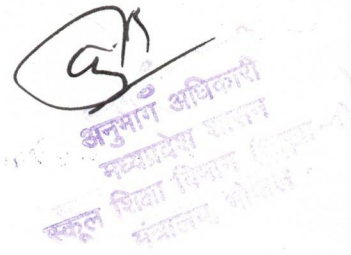 अनुभाग अधिकारी
मध्यप्रदेश शासन
स्कूल शिक्षा विभाग
मंत्रालय, भोपाल